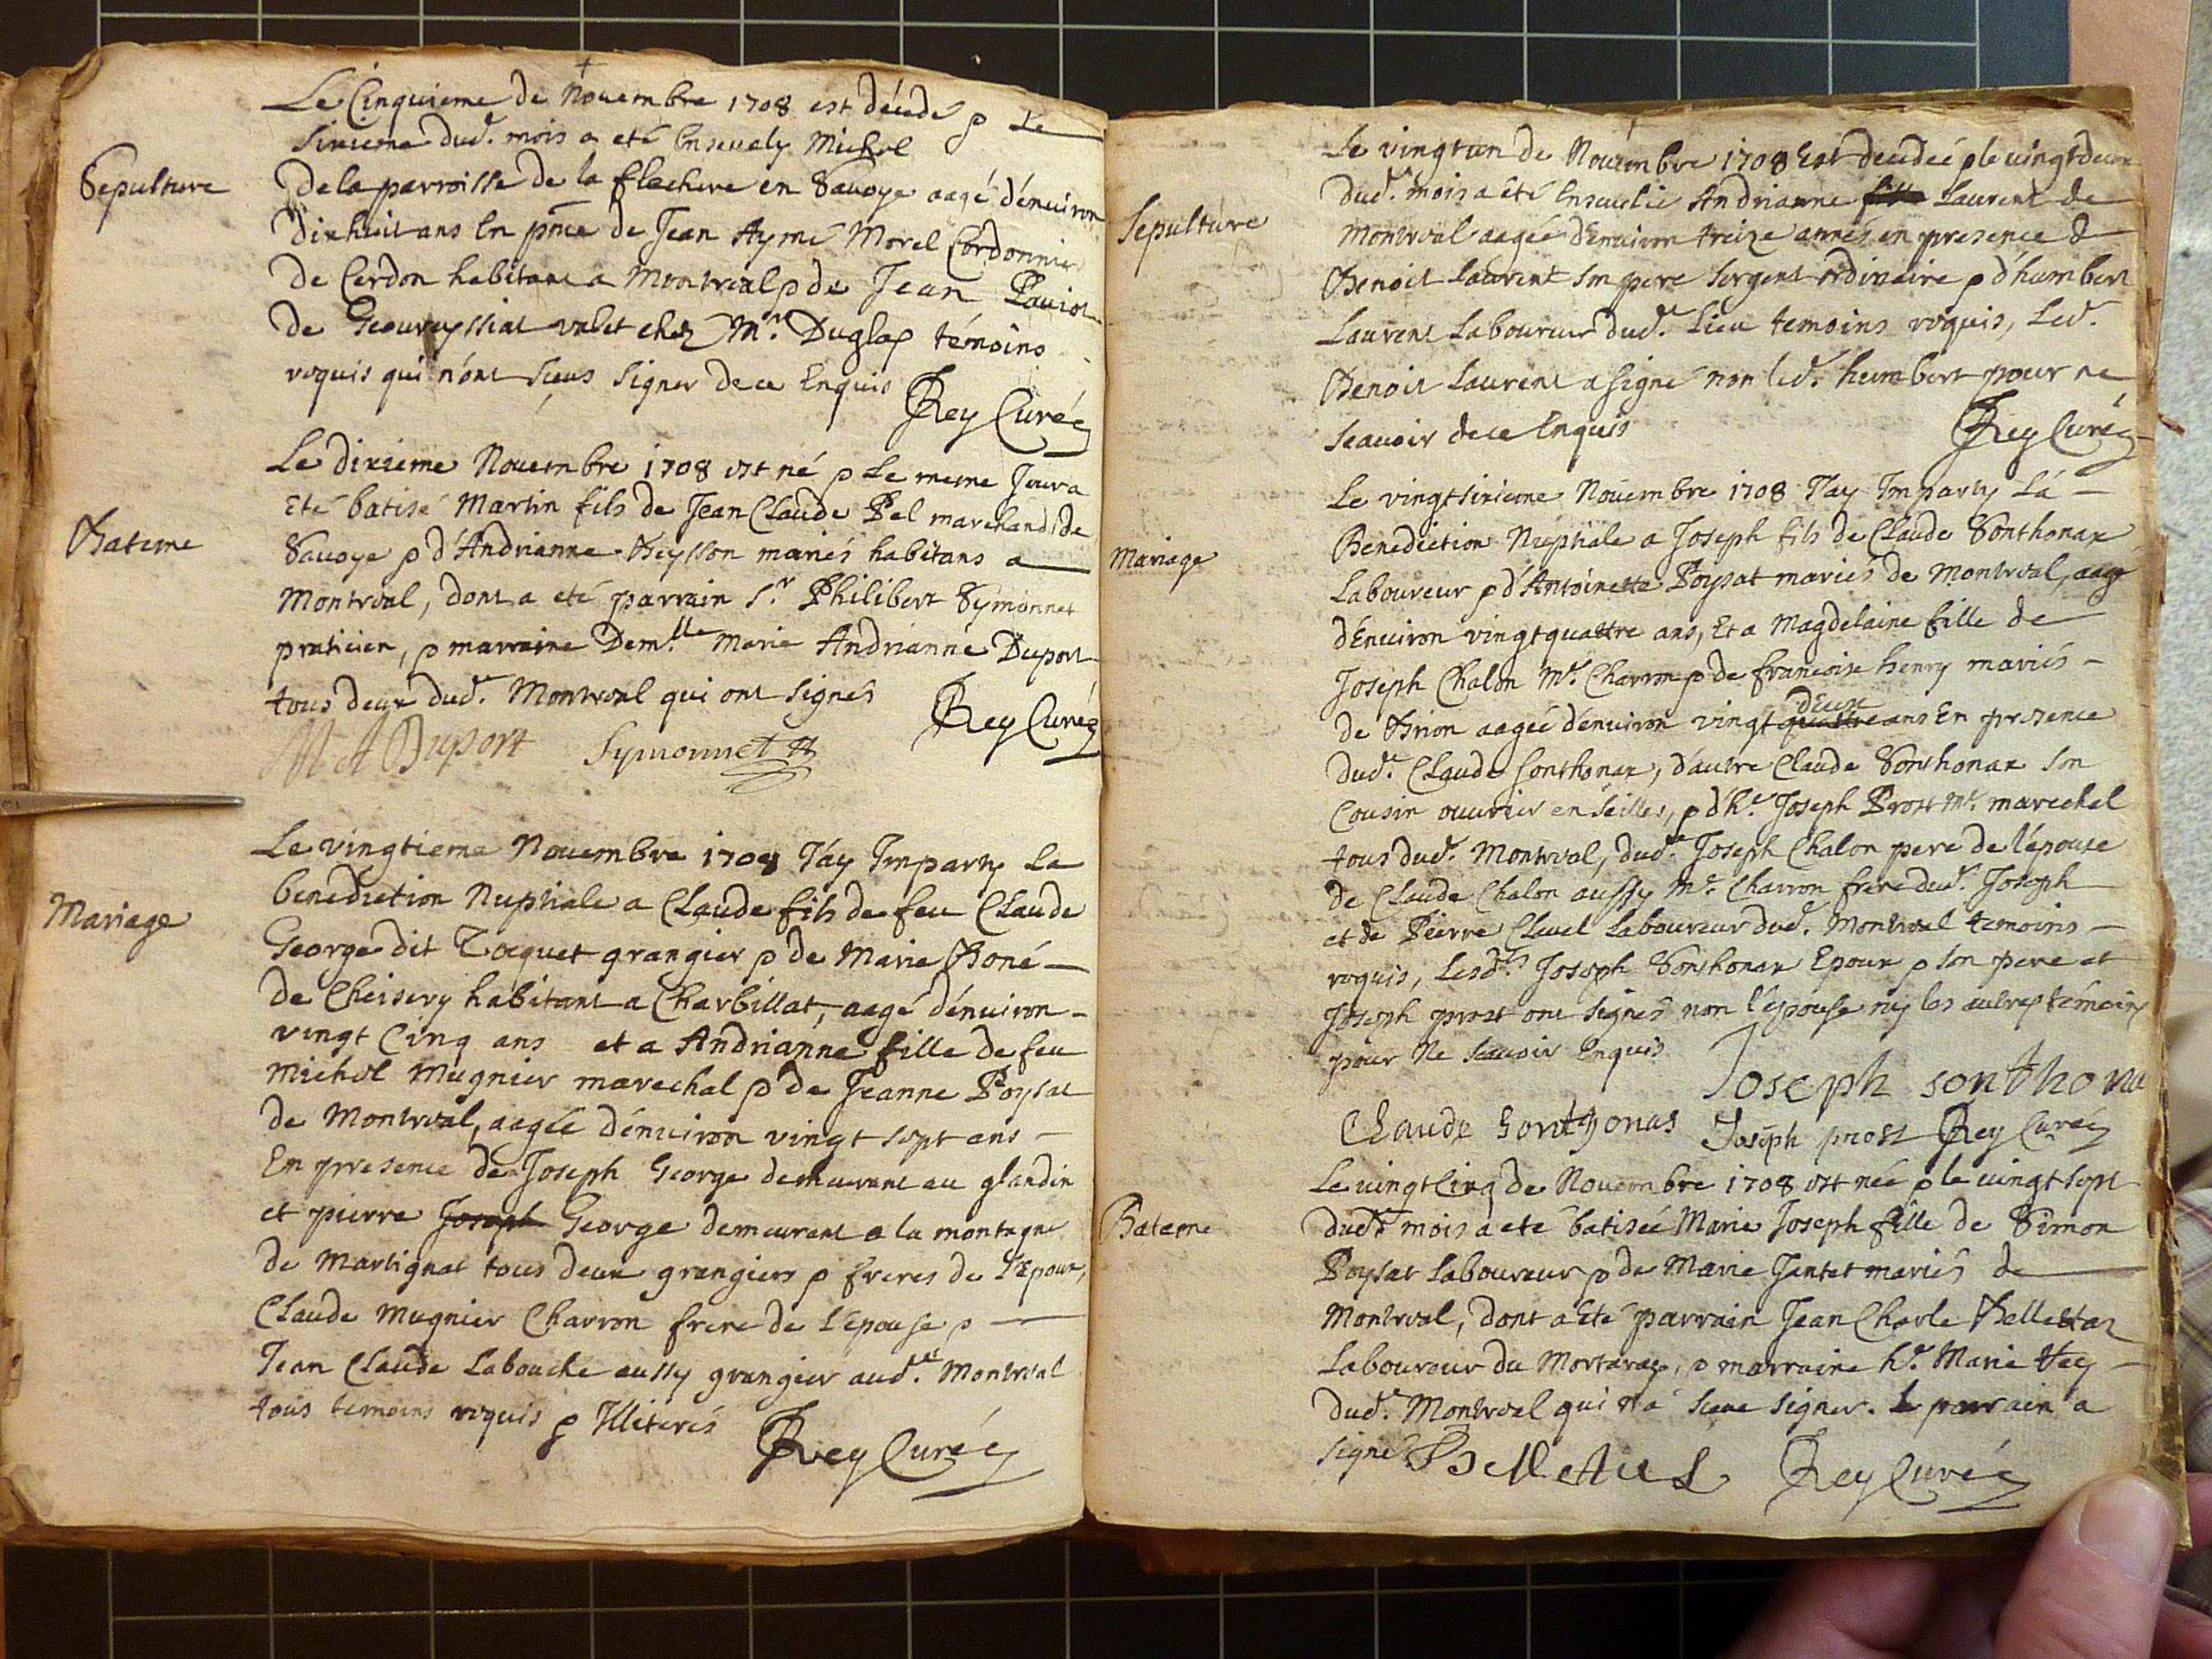 Le Cinquieme de Novembre 1708 est décedé p Le
Sixieme dud. mois a eté Ensevely Michel
Sepulture
De la parroisse de la flechere en Savoye aagé d'environ
Dixhuit ans En pnce de Jean Aymé Morel Cordonnier
de Cerdon habitant a Montreal p de Jean Paviot
de Geovreyssiat valet chez Mr. Duglas témoins
requis qui n'ont sceus signer de ce Enquis
Rey Curé
Le dixieme Novembre 1708 est né p Le meme Jour a
Eté batisé Martin fils de Jean Claude Pel marchand de
Bateme
Savoye p d'Andrianne Beysson mariés habitans a
Montreal, dont a eté parrain Sr. Philibert Symonnet
praticien, p marraine Demlle Marie Andrianne Duport
tous deux dud. Montreal qui ont signés
Rey Curé
M A Duport Symonnet
Le vingtieme Novembre 1708 J'ay Imparty La
benediction Nuptiale a Claude fils de feu Claude
Mariage
George dit Tocquet grangier p de Marie Boné
de Cheisery habitant a Charbillat, aagé d'environ
vingt Cinq ans et a Andrianne fille de feu
Michel Mugnier marechal p de Jeanne Poysat
de Montreal, aagée d'environ vingt sept ans
En presence de Joseph George demeurant au glandin
et pierre Joseph George demeurant a la montagne
de Martignat tous deux grangiers p freres de l'Epoux,
Claude Mugnier Charron frere de l'épouse p
Jean Claude Labouche aussy grangier aud. Montreal
tous temoins requis p Illiterés
Rey Curé
Le vingtun de Novembre 1708 Est decedée p le vingtdeux
dud. mois a été Ensevelie Andrianne fille Laurent de
Sepulture
Montreal aagée d'Environ treize années en presence de
Benoit Laurent son pere sergent ordinaire p d'humbert
Laurent Laboureur dud. Lieu temoins requis, Led.
Benoit Laurent a signé non led. humbert pour ne
scavoir de ce Enquis
Rey Curé
Le vingtsixieme Novembre 1708 J'ay Imparty La
Benediction Nuptiale a Joseph fils de Claude Sonthonax
Mariage
Laboureur p d'Antoinette Poysat mariés de Montreal, aagé
d'Environ vingtquattre ans, Et a Magdelaine fille de
Joseph Chalon Me. Charron p de francoise henry mariés
deux
de Brion aagée d'environ vingt quattre ans En presence
dud. Claude Sonthonax, d'autre Claude Sonthonax son
Cousin ouvrier en seilles, p d'he. Joseph Prost Me. marechal
tous dud. Montreal, dud. Joseph Chalon pere de l'épouse
de Claude Chalon aussy Me. Charron frere dud. Joseph
et de Pierre Clavel Laboureur dud. Montreal temoins
requis, Lesdts Joseph Sonthonax Epoux p son pere et
Joseph prost ont signés non l'épouse ny les autres témoins
pour Ne scavoir Enquis
Joseph sonthona
Claude Sonthonas Joseph prost Rey Curé
Le vingtcinq de Novembre 1708 est née p le vingt sept
Bateme
dud. mois a eté batisée Marie Joseph fille de Simon
Poysat Laboureur p de Marie Jantet mariés de
Montreal, dont a Eté parrain Jean Charle Bellettaz
Laboureur du Mortaray, p marraine he. Marie
dud. Montreal qui n'a sceue signer. Le parrain a
signé
Rey Curé